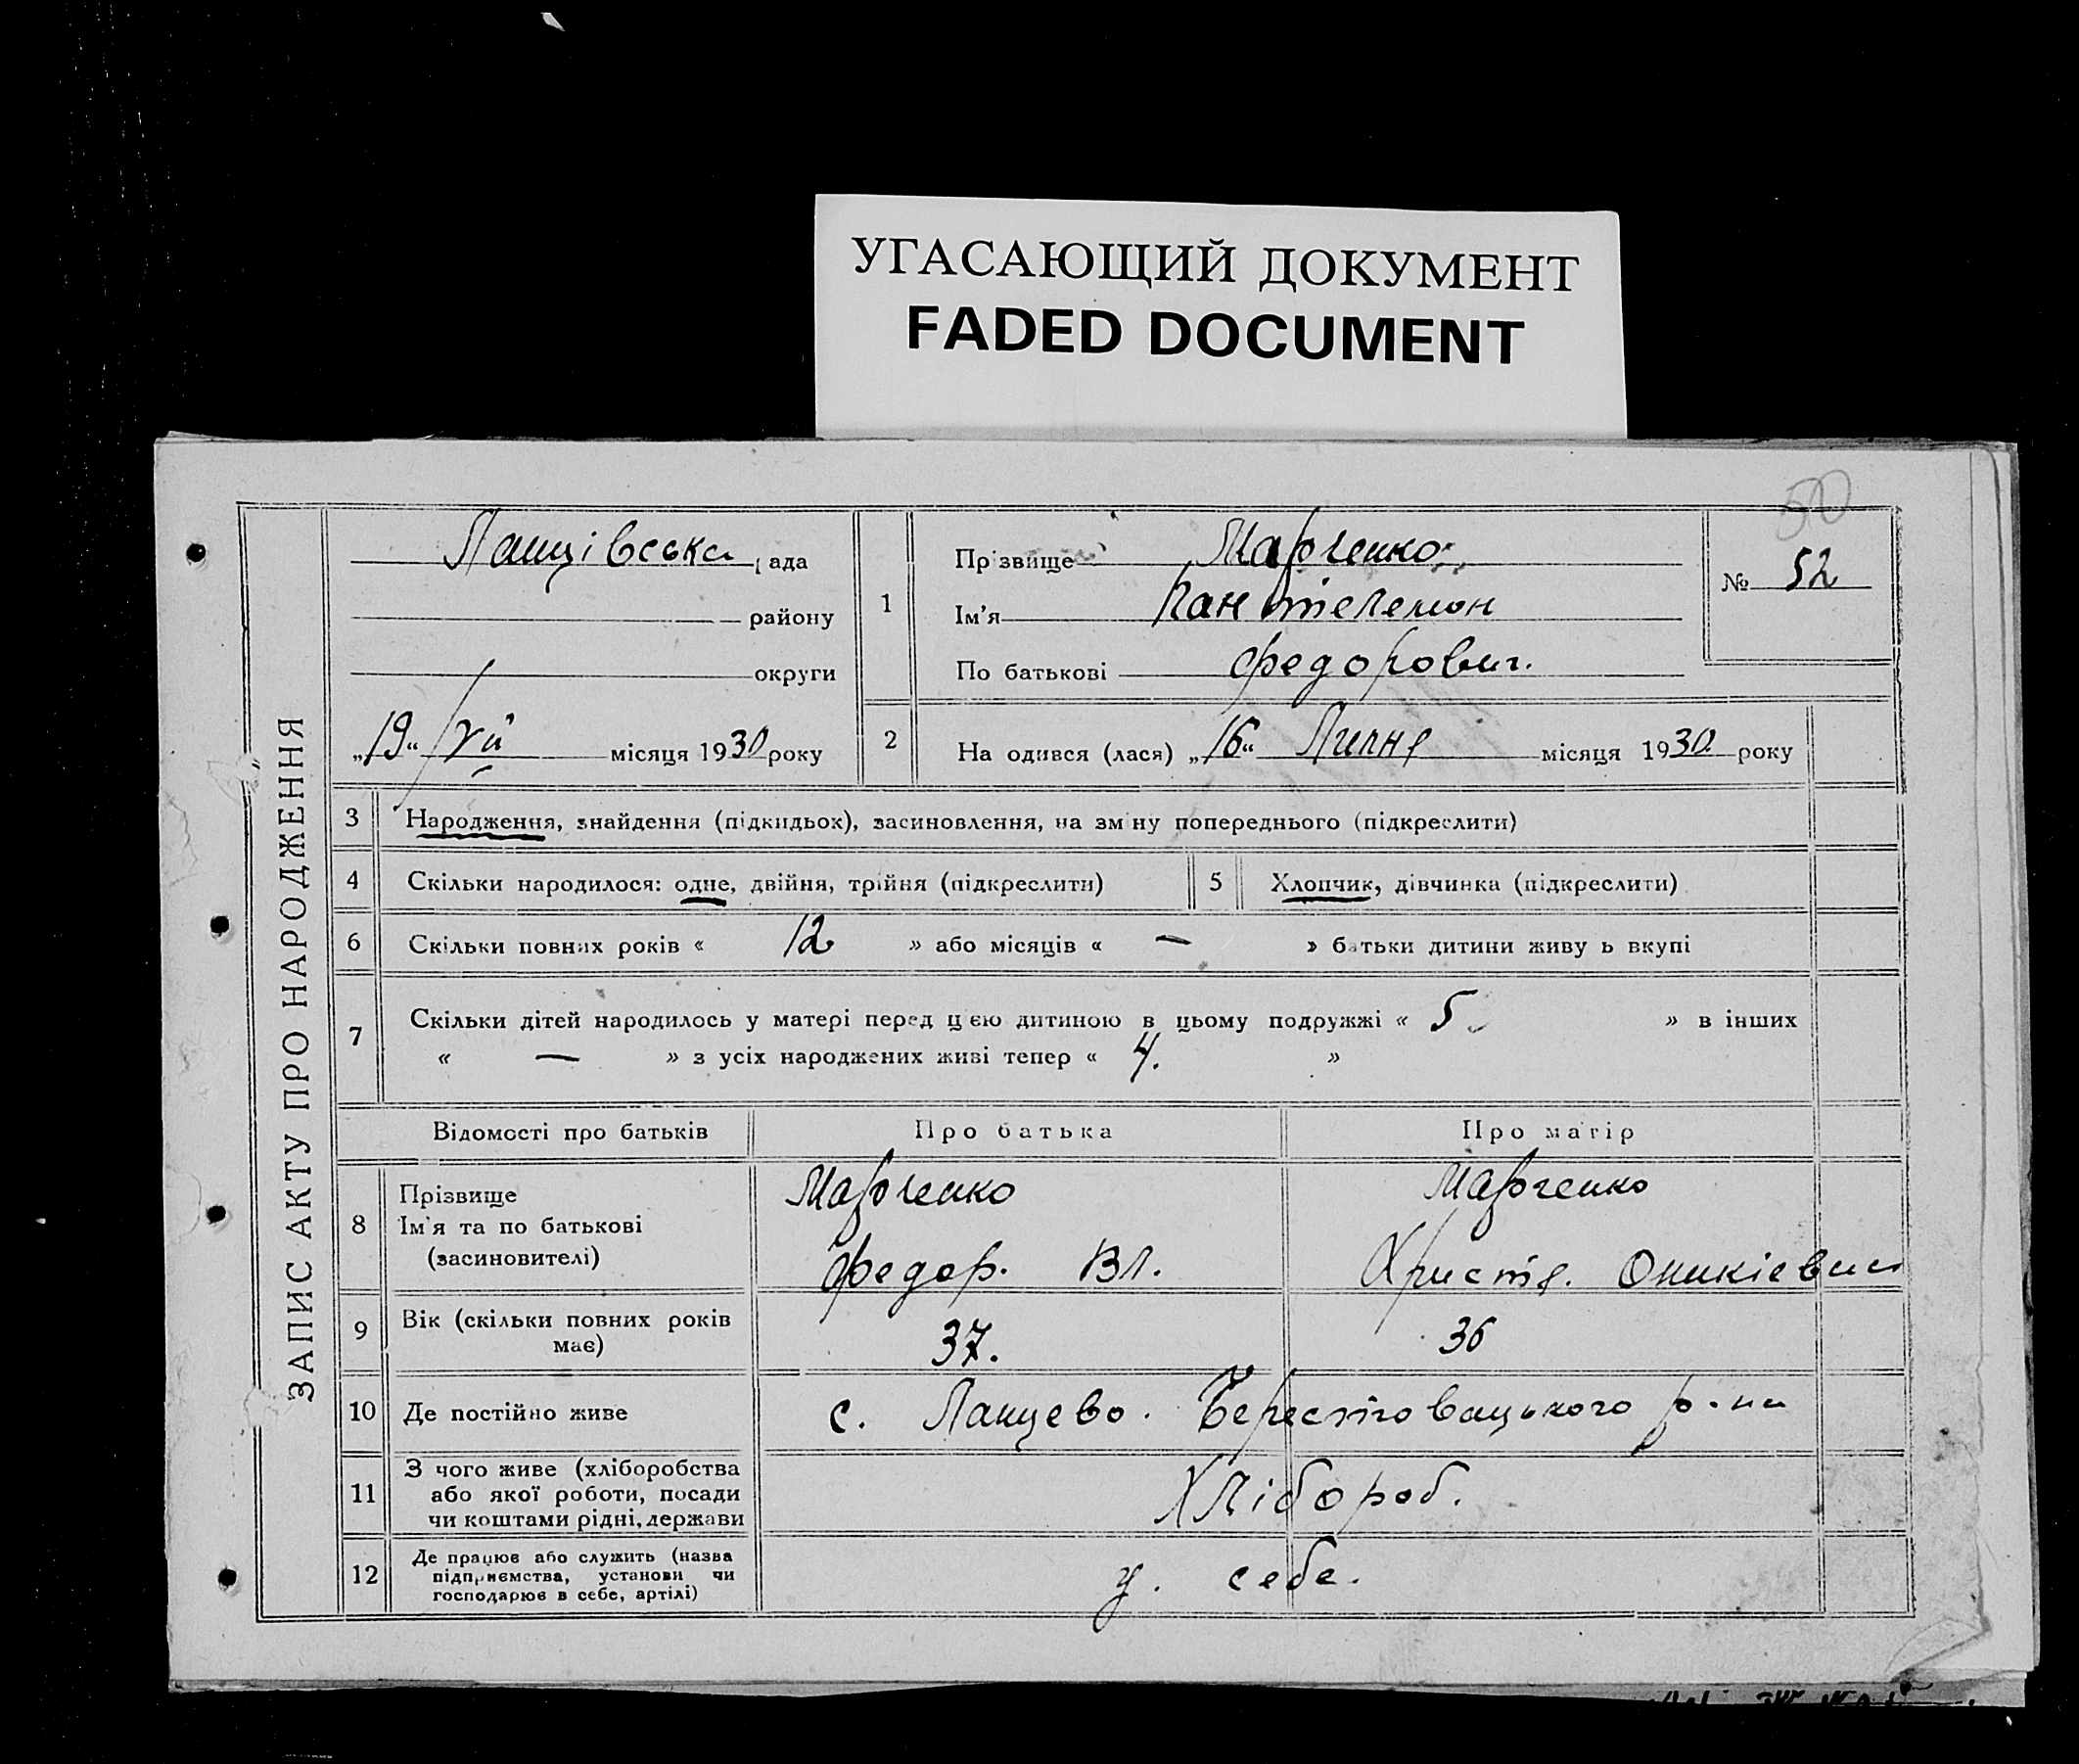 УГАСАЮЩИЙ ДОКУМЕНТ
FADED DOCUMENT
50
ЗАПИС АКТУ ПРО НАРОДЖЕННЯ
Ланцівська рада
району
округи
„19“ VII місяця 1930 року
1
Прізвище Марченко
Ім'я Пантелемон
По батькові Федорович.
№ 52
2 На одився (лася) „16“ Липня місяця 1930 року
3 Народження, знайдення (підкидьок), засиновлення, на зміну попереднього (підкреслити)
4 Скільки народилося: одне, двійня, трійня (підкреслити) 5 Хлопчик, дівчинка (підкреслити)
6 Скільки повних років « 12 » або місяців « — » батьки дитини живу ь вкупі
7 Скільки дітей народилось у матері перед цією дитиною в цьому подружжі « 5 » в інших
« — » з усіх народжених живі тепер « 4. »
Відомості про батьків Про батька Про матір
8 Прізвище Марченко Марченко
Ім'я та по батькові
(засиновителі) Федор. Вл. Христя. Оникієвна
9 Вік (скільки повних років
має) 37. 36
10 Де постійно живе с. Ланцево. Берестовацького р-на
11 З чого живе (хліборобства
або якої роботи, посади
чи коштами рідні, держави Хлібороб.
12 Де працює або служить (назва
підприємства, установи чи
господарює в себе, артілі) у. себе.